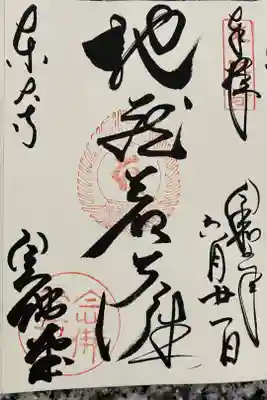 奉拝
六月廿一日
地蔵菩薩
東大寺
念佛堂